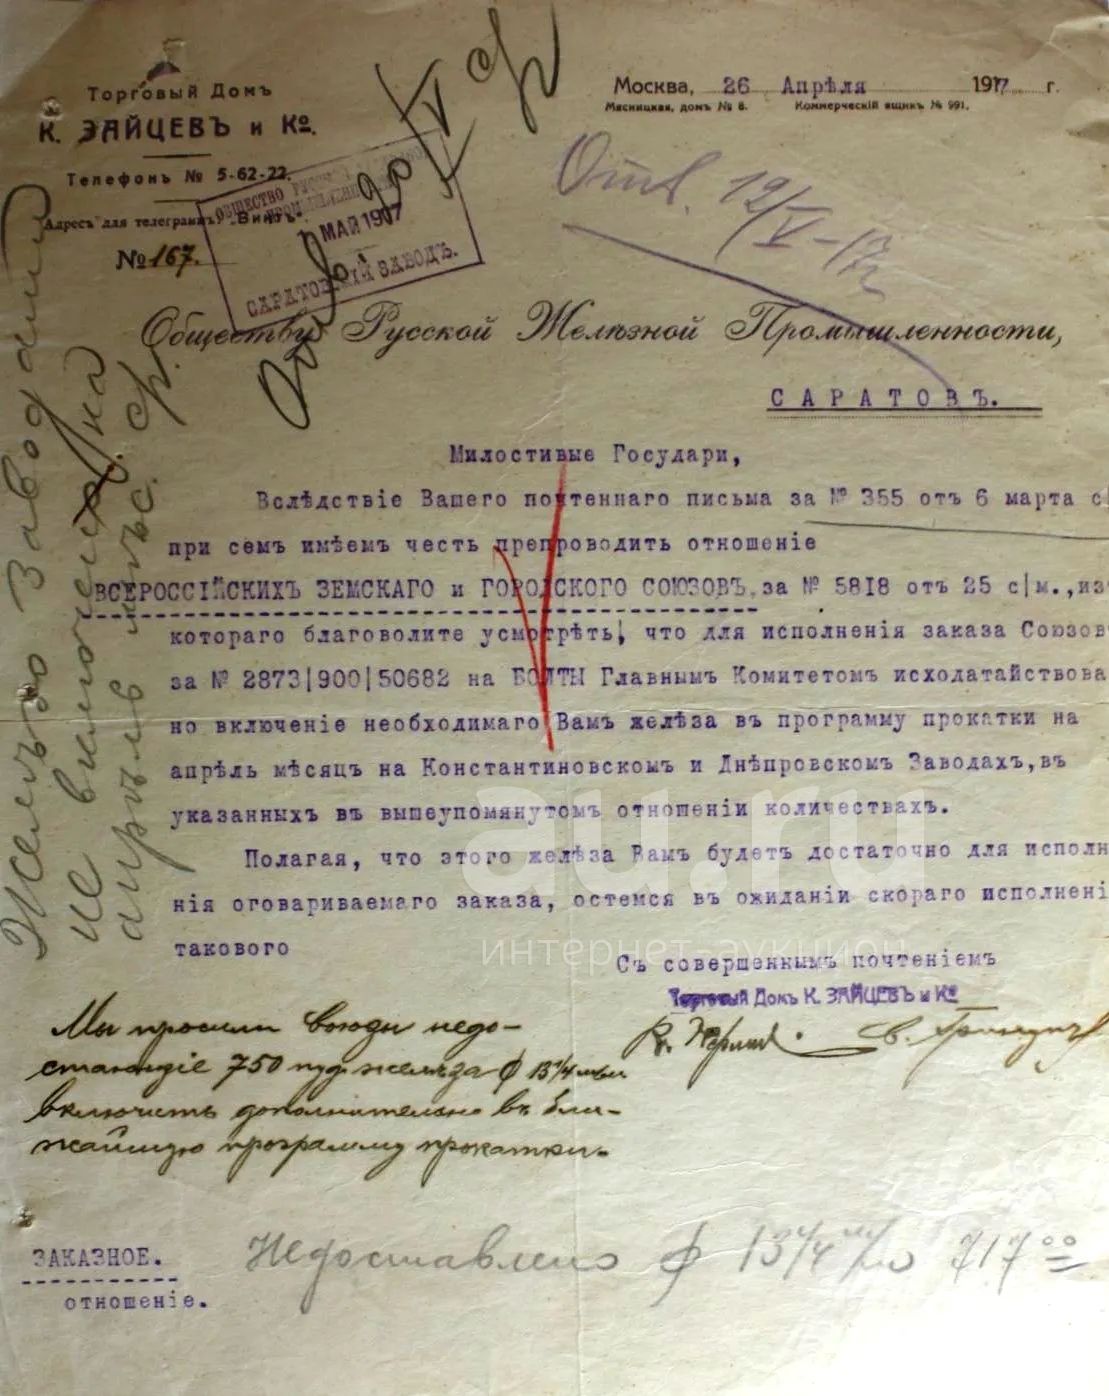 Торговый Домъ
К. ЗАЙЦЕВЪ и Ко.
Телефонъ № 5-62-22.
Адресъ для телеграммъ „Винтъ“
№ 167.
Москва, 26 Апрѣля 1917 г.
Мясницкая, домъ № 8. Коммерческій ящикъ № 991.
ОБЩЕСТВО РУССКОЙ
МАЙ 1917
САРАТОВСКІЙ ЗАВОДЪ.
Отв. 12/V-17г
Обществу Русской Желѣзной Промышленности,
САРАТОВЪ.
Милостивые Государи,
Вслѣдствіе Вашего почтеннаго письма за № 355 отъ 6 марта с
при семъ имѣемъ честь препроводить отношеніе
ВСЕРОССІЙСКИХЪ ЗЕМСКАГО и ГОРОДСКОГО СОЮЗОВЪ, за № 5818 отъ 25 с|м.,из
котораго благоволите усмотрѣть, что для исполненія заказа Союзов
за № 2873|900|50682 на БОЛТЫ Главнымъ Комитетомъ исходатайствова
но включеніе необходимаго Вамъ желѣза въ программу прокатки на
апрѣль мѣсяцъ на Константиновскомъ и Днѣпровскомъ Заводахъ,въ
указанныхъ въ вышеупомянутомъ отношеніи количествахъ.
Полагая, что этого желѣза Вамъ будетъ достаточно для исполн
нія оговариваемаго заказа, остемся въ ожиданіи скораго исполнені
такового
Съ совершеннымъ почтеніемъ
Торговый Домъ К. ЗАЙЦЕВЪ и Ко
Желѣзо Заводами
не включено на
апрѣль мѣс. ср.
Мы просили вновь недо-
стающіе 750 пуд. желѣза ф 13¼ м/м
включить дополнительно въ бли-
жайшую программу прокатки.
ЗАКАЗНОЕ.
отношеніе.
Недоставлено ф 13¼ м/м 717⁰⁰
au.ru
интернет-аукцион